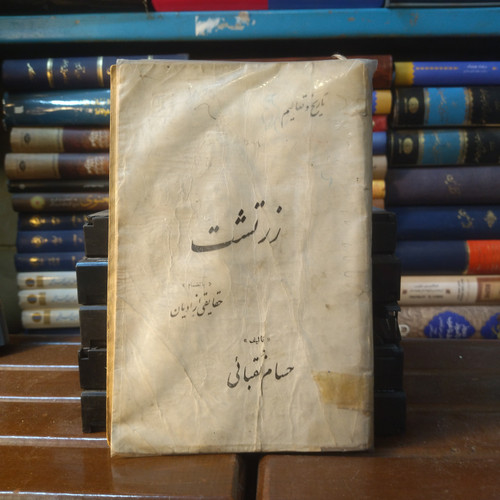 تاریخ و تعالیم
زرتشت
« بانضمام »
حقایقی از ادیان
« تألیف »
حسام نقبائی